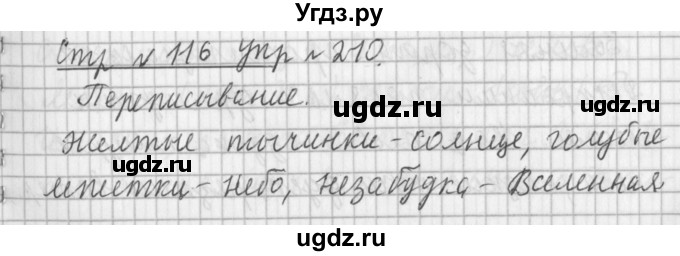 Угдз.ру
Стр № 116 упр № 210.
Переписывание.
Желтые тычинки - солнце, голубые
лепестки - небо, незабудка - Вселенная
ugdz.ru
ugdz.ru
ugdz.ru
ugdz.ru
ugdz.ru
ugdz.ru